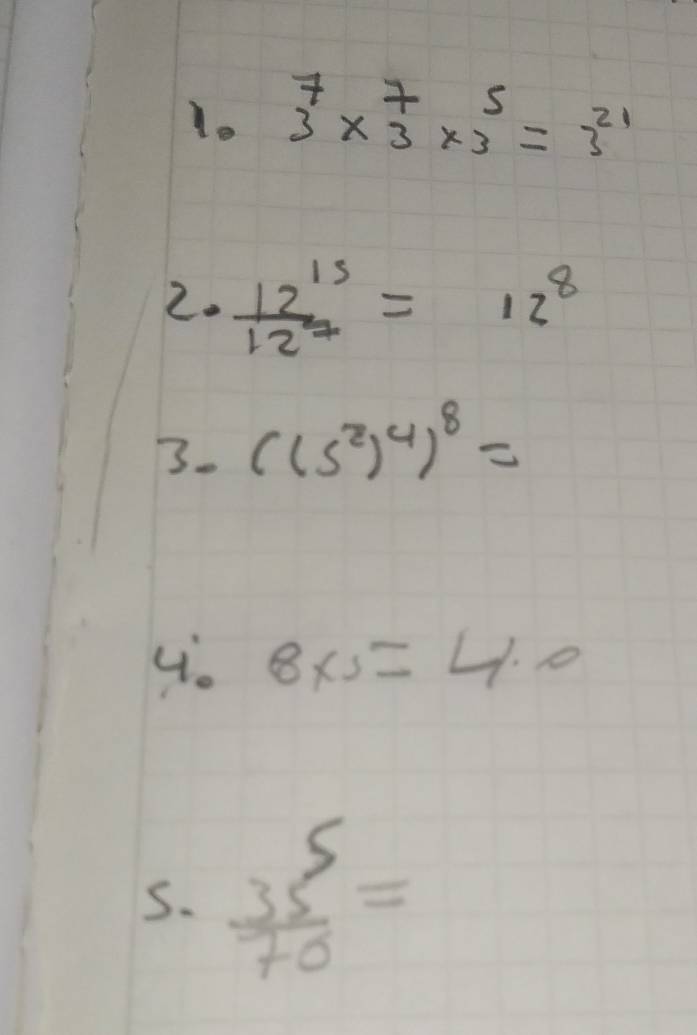 1. 3⁷ × 3⁷ × 3⁵ = 3²¹
2. 12¹⁵ / 12⁷ = 12⁸
3. ((5²)⁴)⁸ =
4. 8×5 = 4.0
5. 35⁵ / 70 =